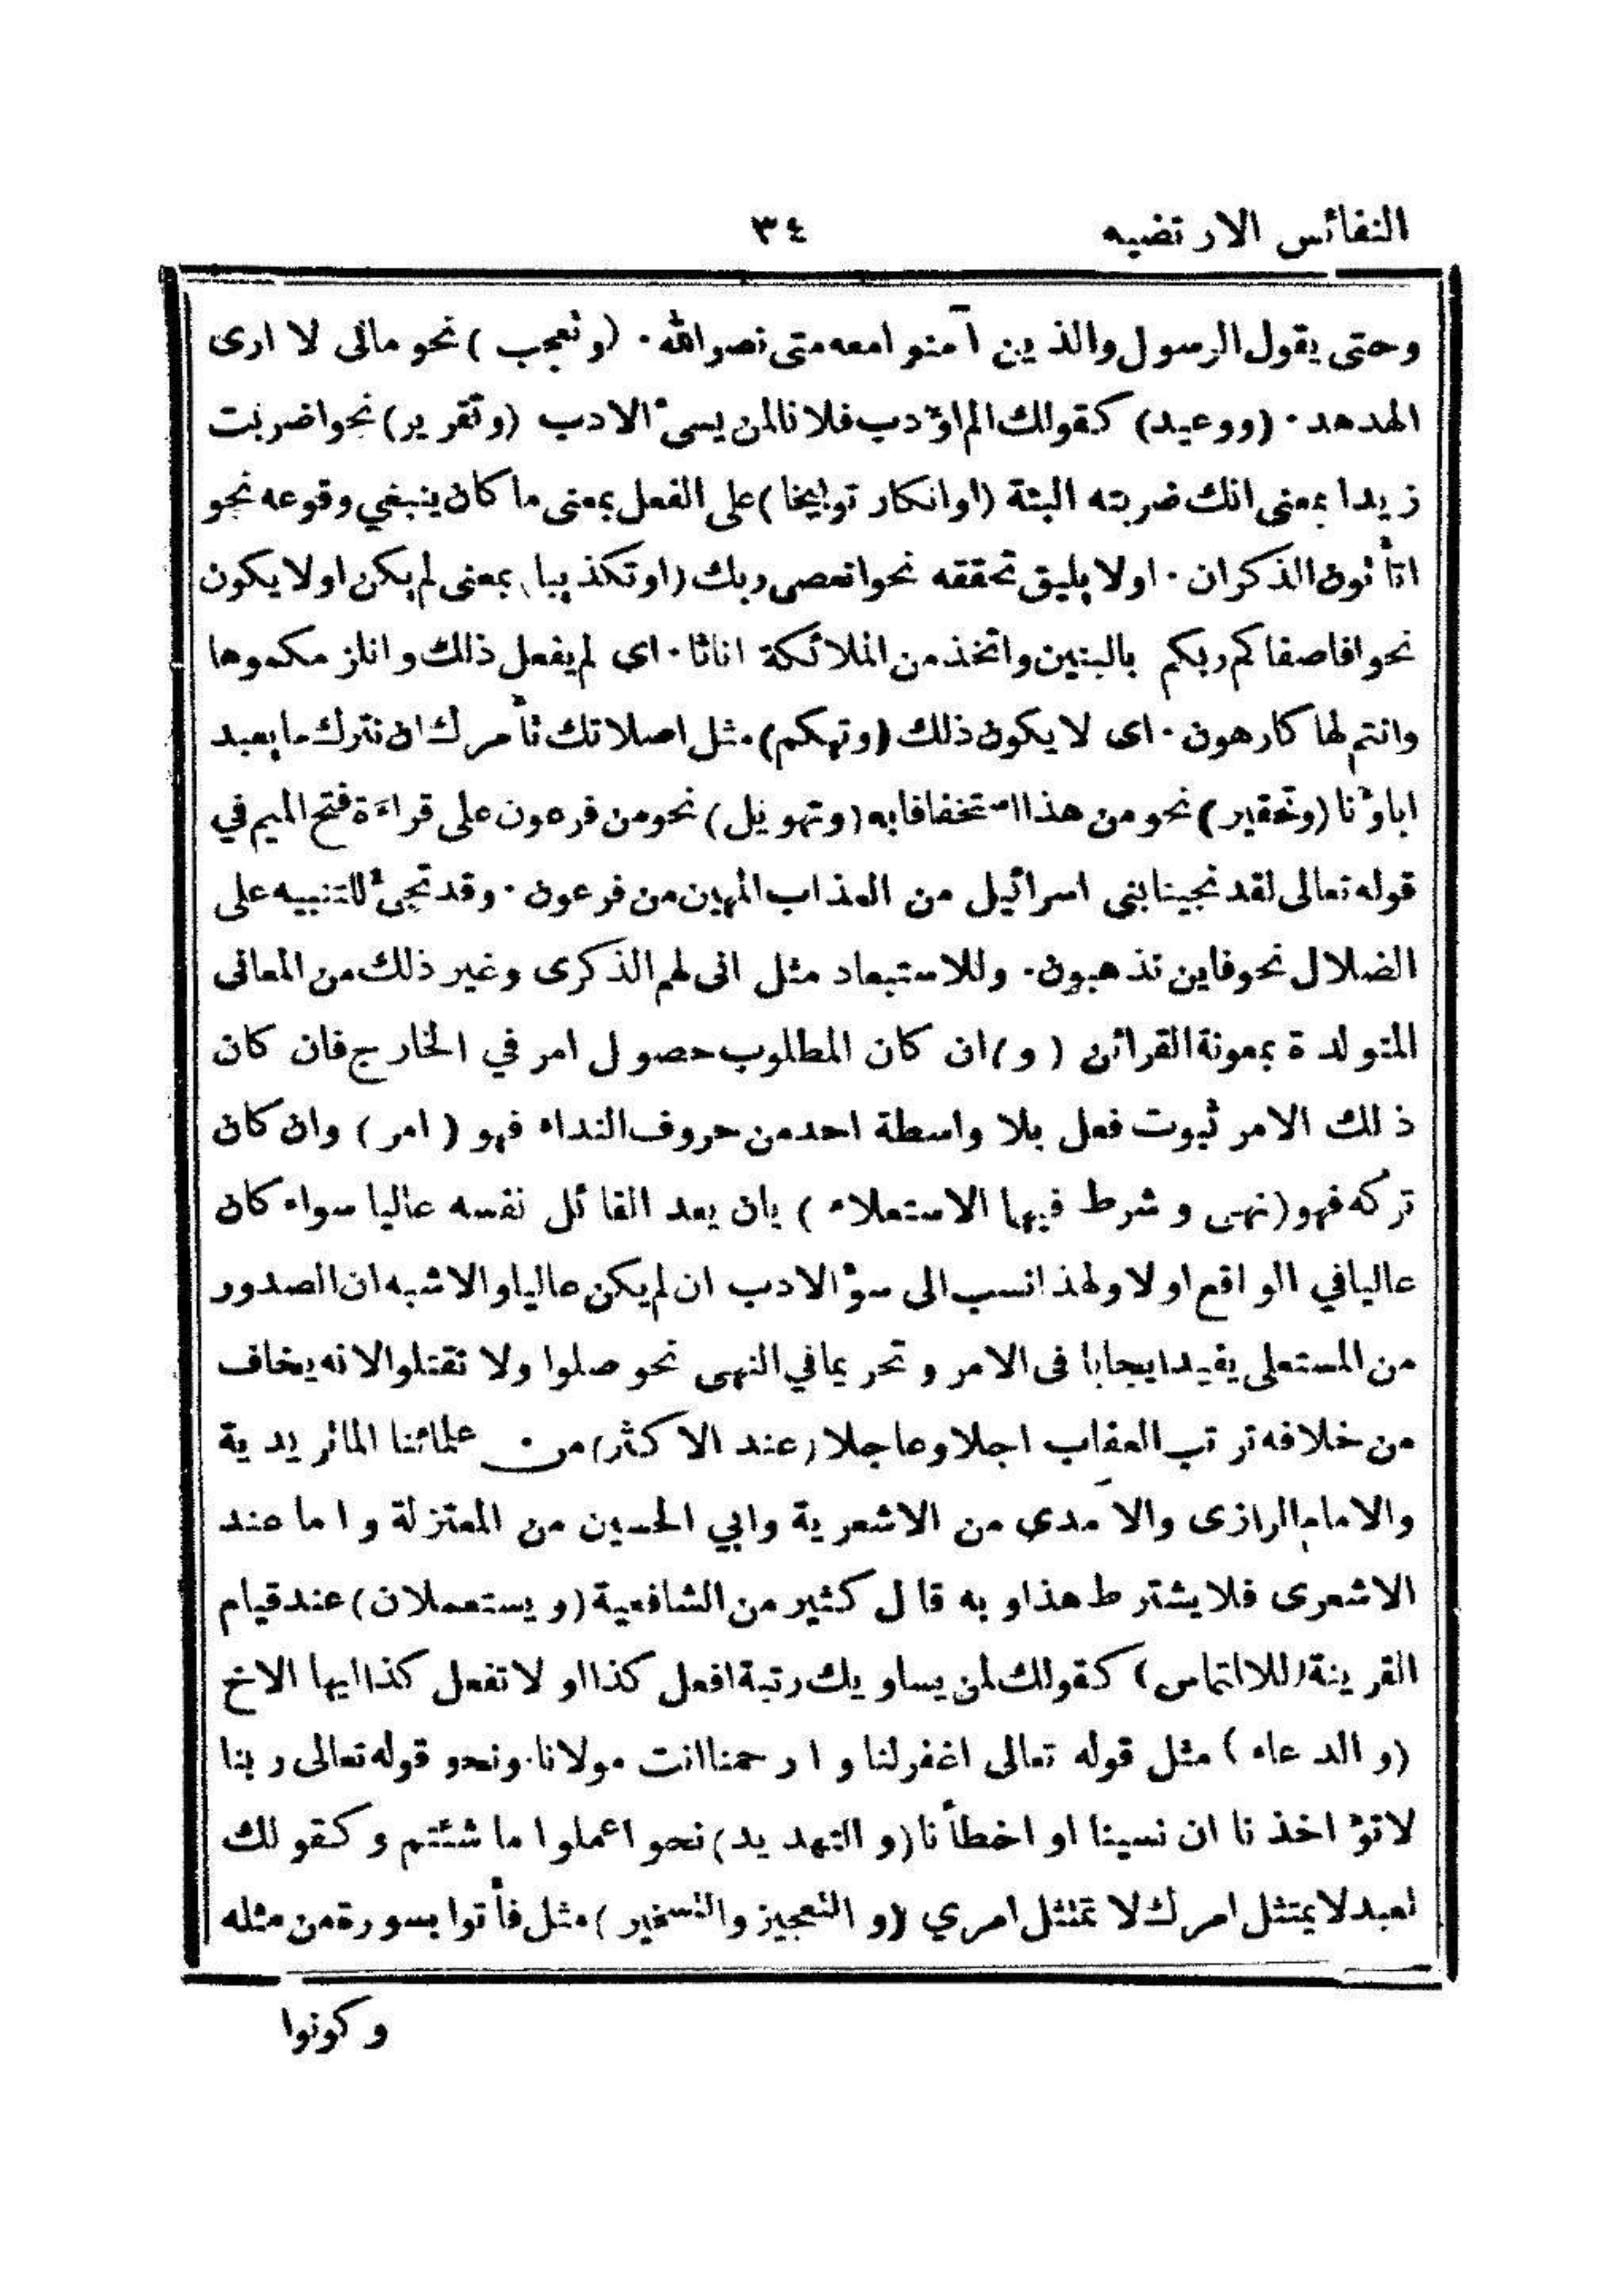 النفائس الارتضيه ٣٤
وحتى يقول الرسول والذين آمنوا معه متى نصر الله . (وتعجب) نحو مالى لا ارى
الهدهد . (ووعيد) كقولك الم اؤدب فلانا لمن يسئ الادب (وتقرير) نحو اضربت
زيدا بمعنى انك ضربته البتة (او انكار توبيخا) على الفعل بمعنى ما كان ينبغي وقوعه نحو
اتأتون الذكران . اولا يليق تحققه نحو اتعصى ربك (او تكذيبا) بمعنى لم يكن اولا يكون
نحو افاصفاكم ربكم بالبنين واتخذ من الملائكة اناثا . اي لم يفعل ذلك وانلزمكموها
وانتم لها كارهون . اى لا يكون ذلك (وتهكم) مثل اصلاتك تأمرك ان نترك ما يعبد
اباؤنا (وتحقير) نحو من هذا استخفافا به (وتهويل) نحو من فرعون على قراءة فتح الميم في
قوله تعالى لقد نجينا بنى اسرائيل من العذاب المهين من فرعون . وقد تجئ للتنبيه على
الضلال نحو فاين تذهبون . وللاستبعاد مثل انى لهم الذكرى وغير ذلك من المعانى
المتولدة بمعونة القرائن (و) ان كان المطلوب حصول امر في الخارج فان كان
ذلك الامر ثبوت فعل بلا واسطة احد من حروف النداء فهو (امر) وان كان
تركه فهو (نهى وشرط فيهما الاستعلاء) بان يعد القائل نفسه عاليا سواء كان
عاليا في الواقع اولا ولهذا نسب الى سوء الادب ان لم يكن عاليا والاشبه ان الصدور
من المستعلى يفيد ايجابا فى الامر وتحريما في النهى نحو صلوا ولا تقتلوا لانه يخاف
من خلافه ترتب العقاب اجلا وعاجلا (عند الاكثر) من علمائنا الماتريدية
والامام الرازى والآمدي من الاشعرية وابي الحسين من المعتزلة واما عند
الاشعرى فلا يشترط هذا وبه قال كثير من الشافعية (ويستعملان) عند قيام
القرينة (للالتماس) كقولك لمن يساويك رتبة افعل كذا او لا تفعل كذا ايها الاخ
(والدعاء) مثل قوله تعالى اغفر لنا وارحمنا انت مولانا . ونحو قوله تعالى ربنا
لا تؤاخذنا ان نسينا او اخطأنا (والتهديد) نحو اعملوا ما شئتم وكقولك
لعبد لا يمتثل امرك لا تمتثل امري (والتعجيز والتسخير) مثل فأتوا بسورة من مثله
وكونوا